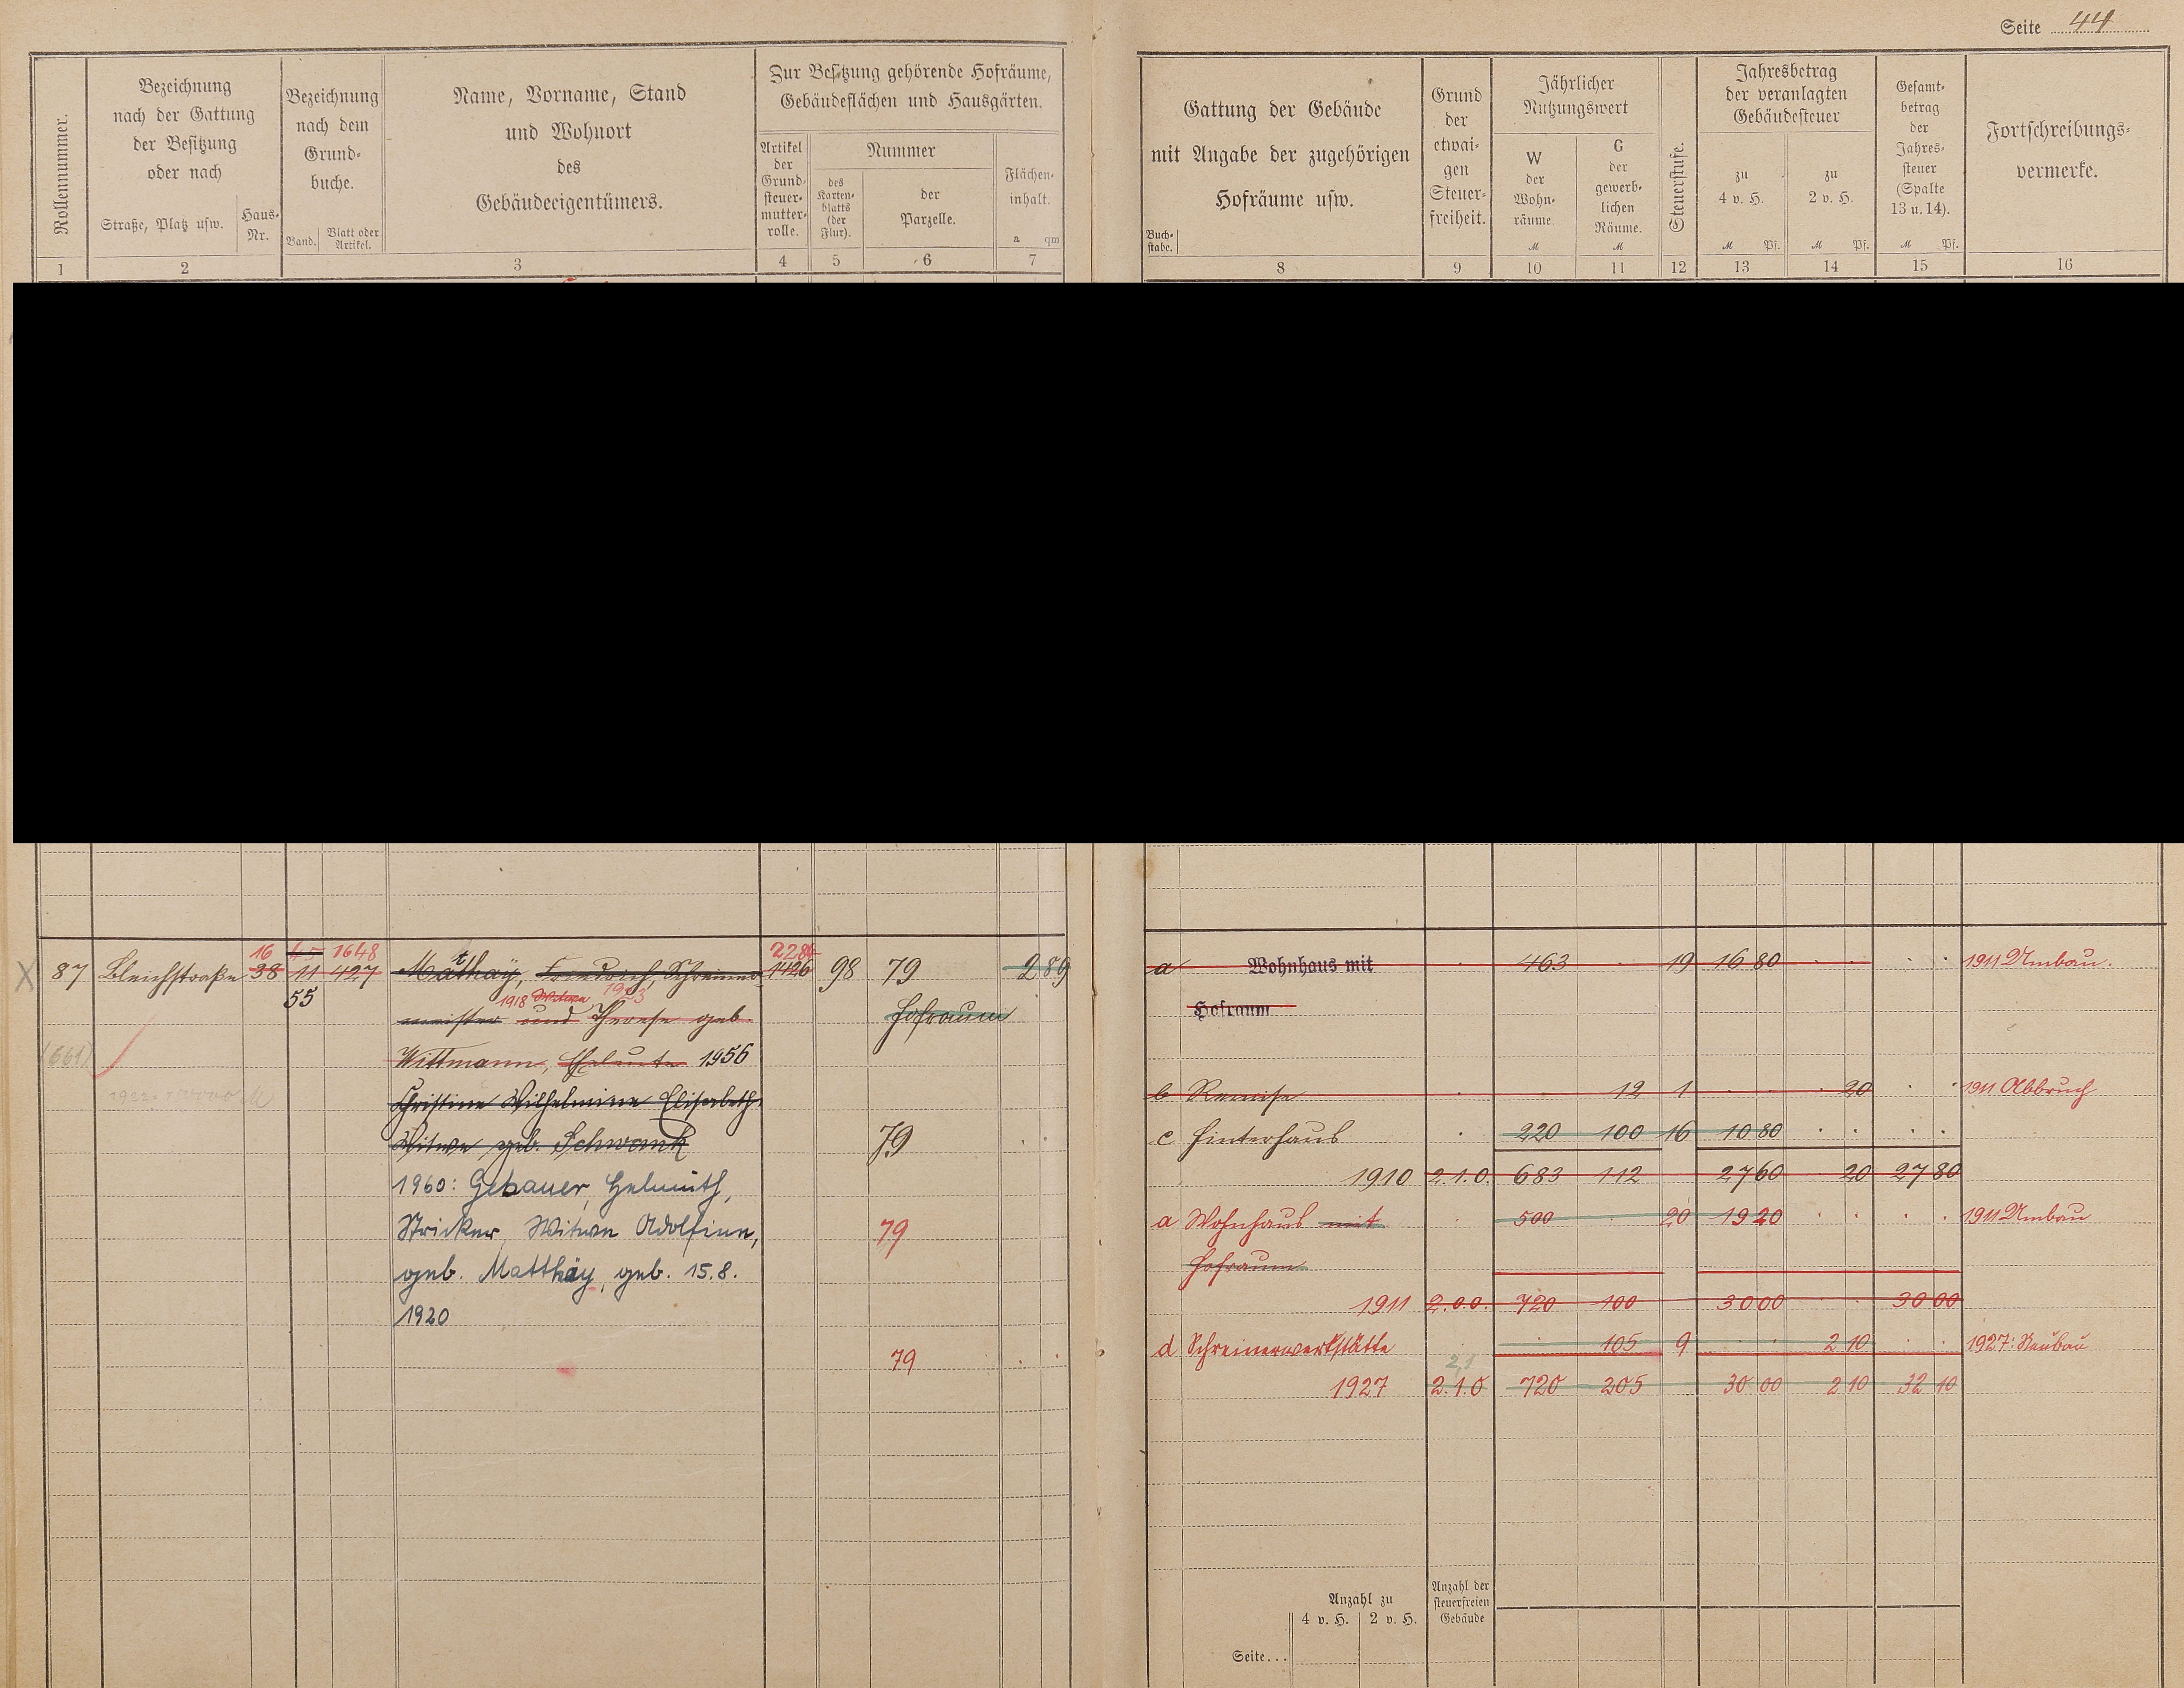 Seite 44
Rollennummer.
Bezeichnung
nach der Gattung
der Besitzung
oder nach
Straße, Platz usw.
Haus-
Nr.
Bezeichnung
nach dem
Grund-
buche.
Band.
Blatt oder
Artikel.
Name, Vorname, Stand
und Wohnort
des
Gebäudeeigentümers.
Zur Besitzung gehörende Hofräume,
Gebäudeflächen und Hausgärten.
Artikel
der
Grund-
steuer-
mutter-
rolle.
Nummer
des
Karten-
blatts
(der
Flur).
der
Parzelle.
Flächen-
inhalt.
a qm
1 2 3 4 5 6 7
Buch-
stabe.
Gattung der Gebäude
mit Angabe der zugehörigen
Hofräume usw.
Grund
der
etwai-
gen
Steuer-
freiheit.
Jährlicher
Nutzungswert
W
der
Wohn-
räume.
M
G
der
gewerb-
lichen
Räume.
M
Steuerstufe.
Jahresbetrag
der veranlagten
Gebäudesteuer
zu
4 v. H.
M Pf.
zu
2 v. H.
M Pf.
Gesamt-
betrag
der
Jahres-
steuer
(Spalte
13 u. 14).
M Pf.
Fortschreibungs-
vermerke.
8 9 10 11 12 13 14 15 16
16 45 1648 2284
X 87 Bleichstraße 38 11 427 Matthäy, Friedrich, Schreiner- 1426 98 79 2 89
55
1918 Witwe 1953
meister und Therese geb. Hofraum
(661) Wittmann, Eheleute 1956
1922
Christine Wilhelmine Elisabeth
Witwe geb. Schwank 79
1960: Gebauer, Helmuth,
Stricker, Witwe Adolfine, 79
geb. Matthäy, geb. 15.8.
1920
79
a Wohnhaus mit 463 19 16 80 1911 Umbau.
Hofraum
b Remise 12 1 20 1911 Abbruch
c Hinterhaus 220 100 16 10 80
1910 2.1.0. 683 112 27 60 20 27 80
a Wohnhaus mit 500 20 19 20 1911 Umbau
Hofraum
1911 2.0.0. 720 100 30 00 30 00
d Schreinerwerkstätte 105 9 2 10 1927: Neubau
2,1
1927 2.1.0 720 205 30 00 2 10 32 10
Anzahl zu
4 v. H. 2 v. H.
Anzahl der
steuerfreien
Gebäude
Seite...